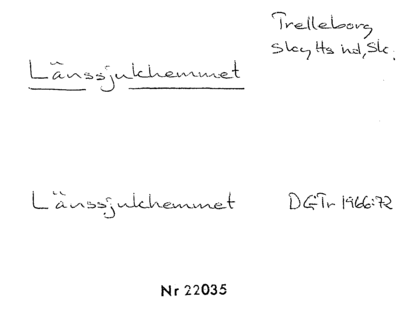 Trelleborg
Skytts hd, Sk.
Länssjukhemmet
Länssjukhemmet DGTr 1966:72
Nr 22035